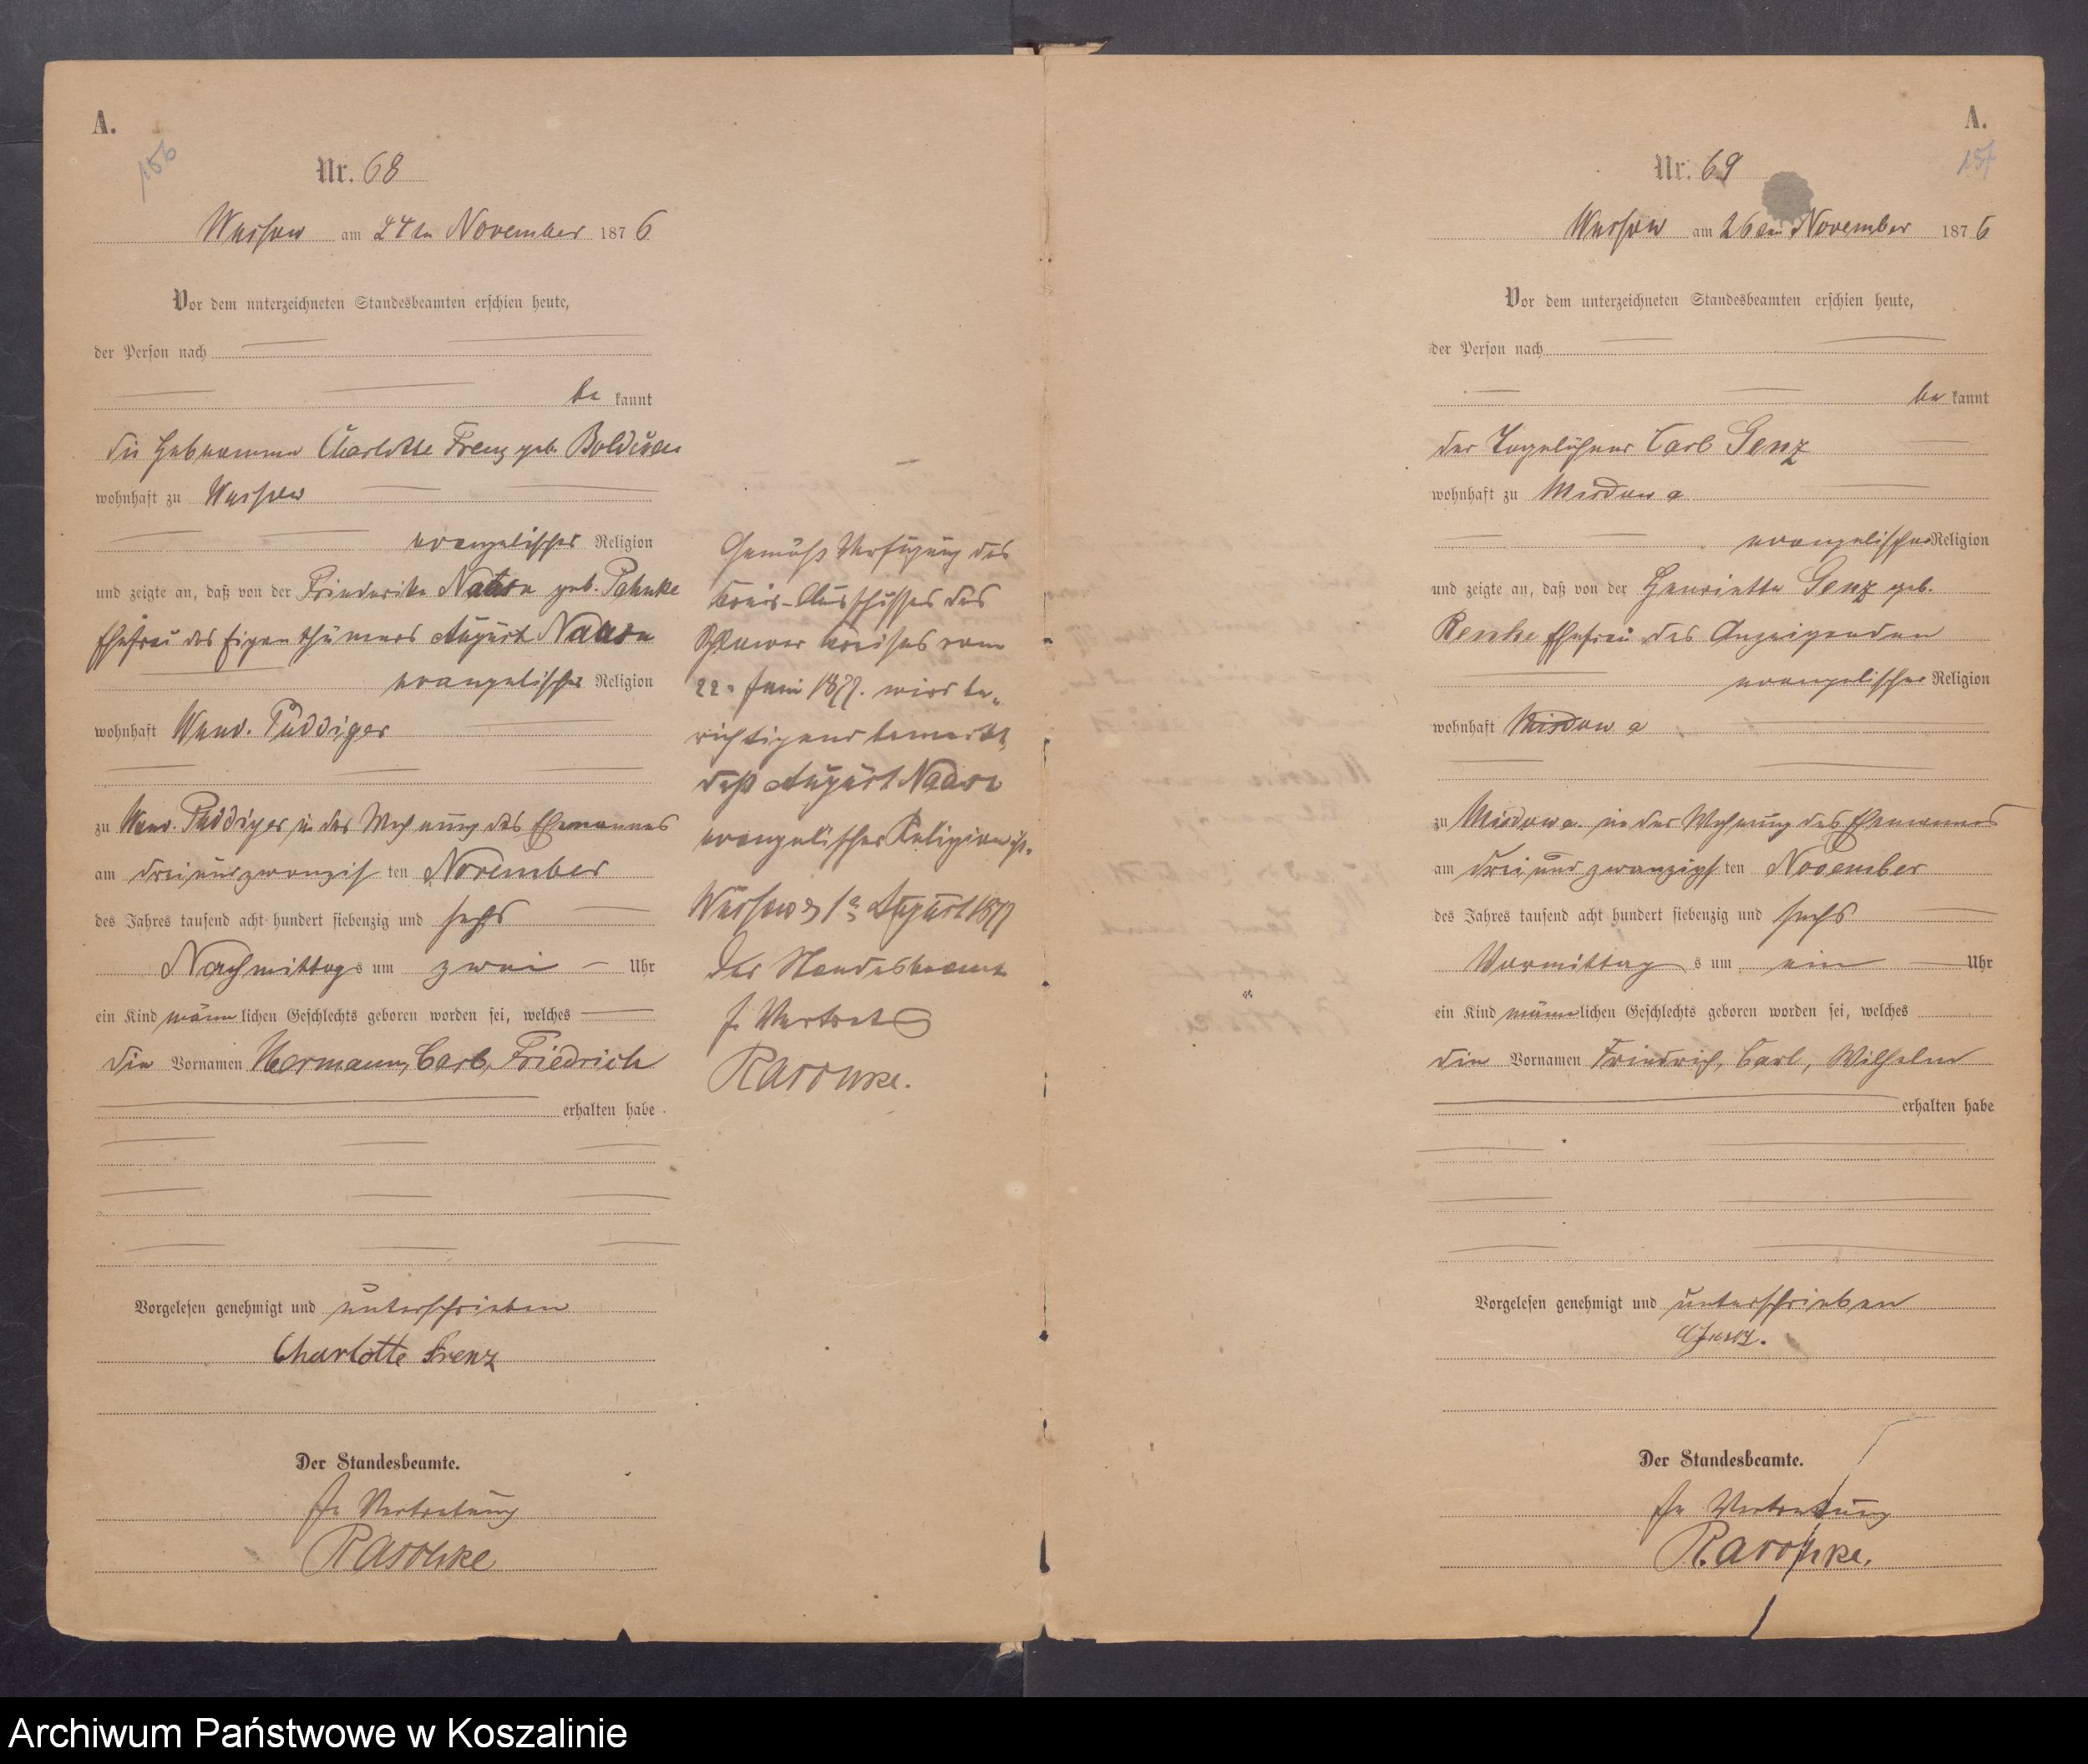 A.
156
Nr. 68
Wussow am 24ten November 1876
Vor dem unterzeichneten Standesbeamten erschien heute,
der Person nach
be kannt
die Hebeamme Charlotte Frenz geb. Bolduan
wohnhaft zu Wussow
evangelischer Religion
und zeigte an, daß von der Friederike geb. Pahnke
Ehefrau des Eigenthümers August
evangelischer Religion
wohnhaft Wend. Puddiger
zu Wend. Puddiger in der Wohnung des Ehemannes
am dreiundzwanzigsten November
des Jahres tausend acht hundert siebenzig und sechs
Nachmittags um zwei Uhr
ein Kind männlichen Geschlechts geboren worden sei, welches
die Vornamen Hermann, Carl, Friedrich
erhalten habe.
Vorgelesen genehmigt und unterschrieben
Charlotte Frenz
Der Standesbeamte.
In Vertretung
Raschke
Gemäß Verfügung des
Kreis-Ausschusses des
Schlawer Kreises vom
22. Juni 1877. wird be-
richtigend bemerkt,
daß August
evangelischer Religion ist.
Wussow d 1. August 1877
Der Standesbeamte
J. Vertret
Raschke.
A.
157
Nr. 69
Wussow am 26ten November 1876
Vor dem unterzeichneten Standesbeamten erschien heute,
der Person nach
be kannt
der Tagelöhner Carl Genz
wohnhaft zu Misdow a
evangelischer Religion
und zeigte an, daß von der Henriette Genz geb.
Renke Ehefrau des Anzeigenden
evangelischer Religion
wohnhaft Misdow a
zu Misdow a. in der Wohnung des Ehemannes
am dreiundzwanzigsten November
des Jahres tausend acht hundert siebenzig und sechs
Vormittags um ein Uhr
ein Kind männlichen Geschlechts geboren worden sei, welches
die Vornamen Friedrich, Carl, Wilhelm
erhalten habe
Vorgelesen genehmigt und unterschrieben
Der Standesbeamte.
In Vertretung
Raschke.
Archiwum Państwowe w Koszalinie